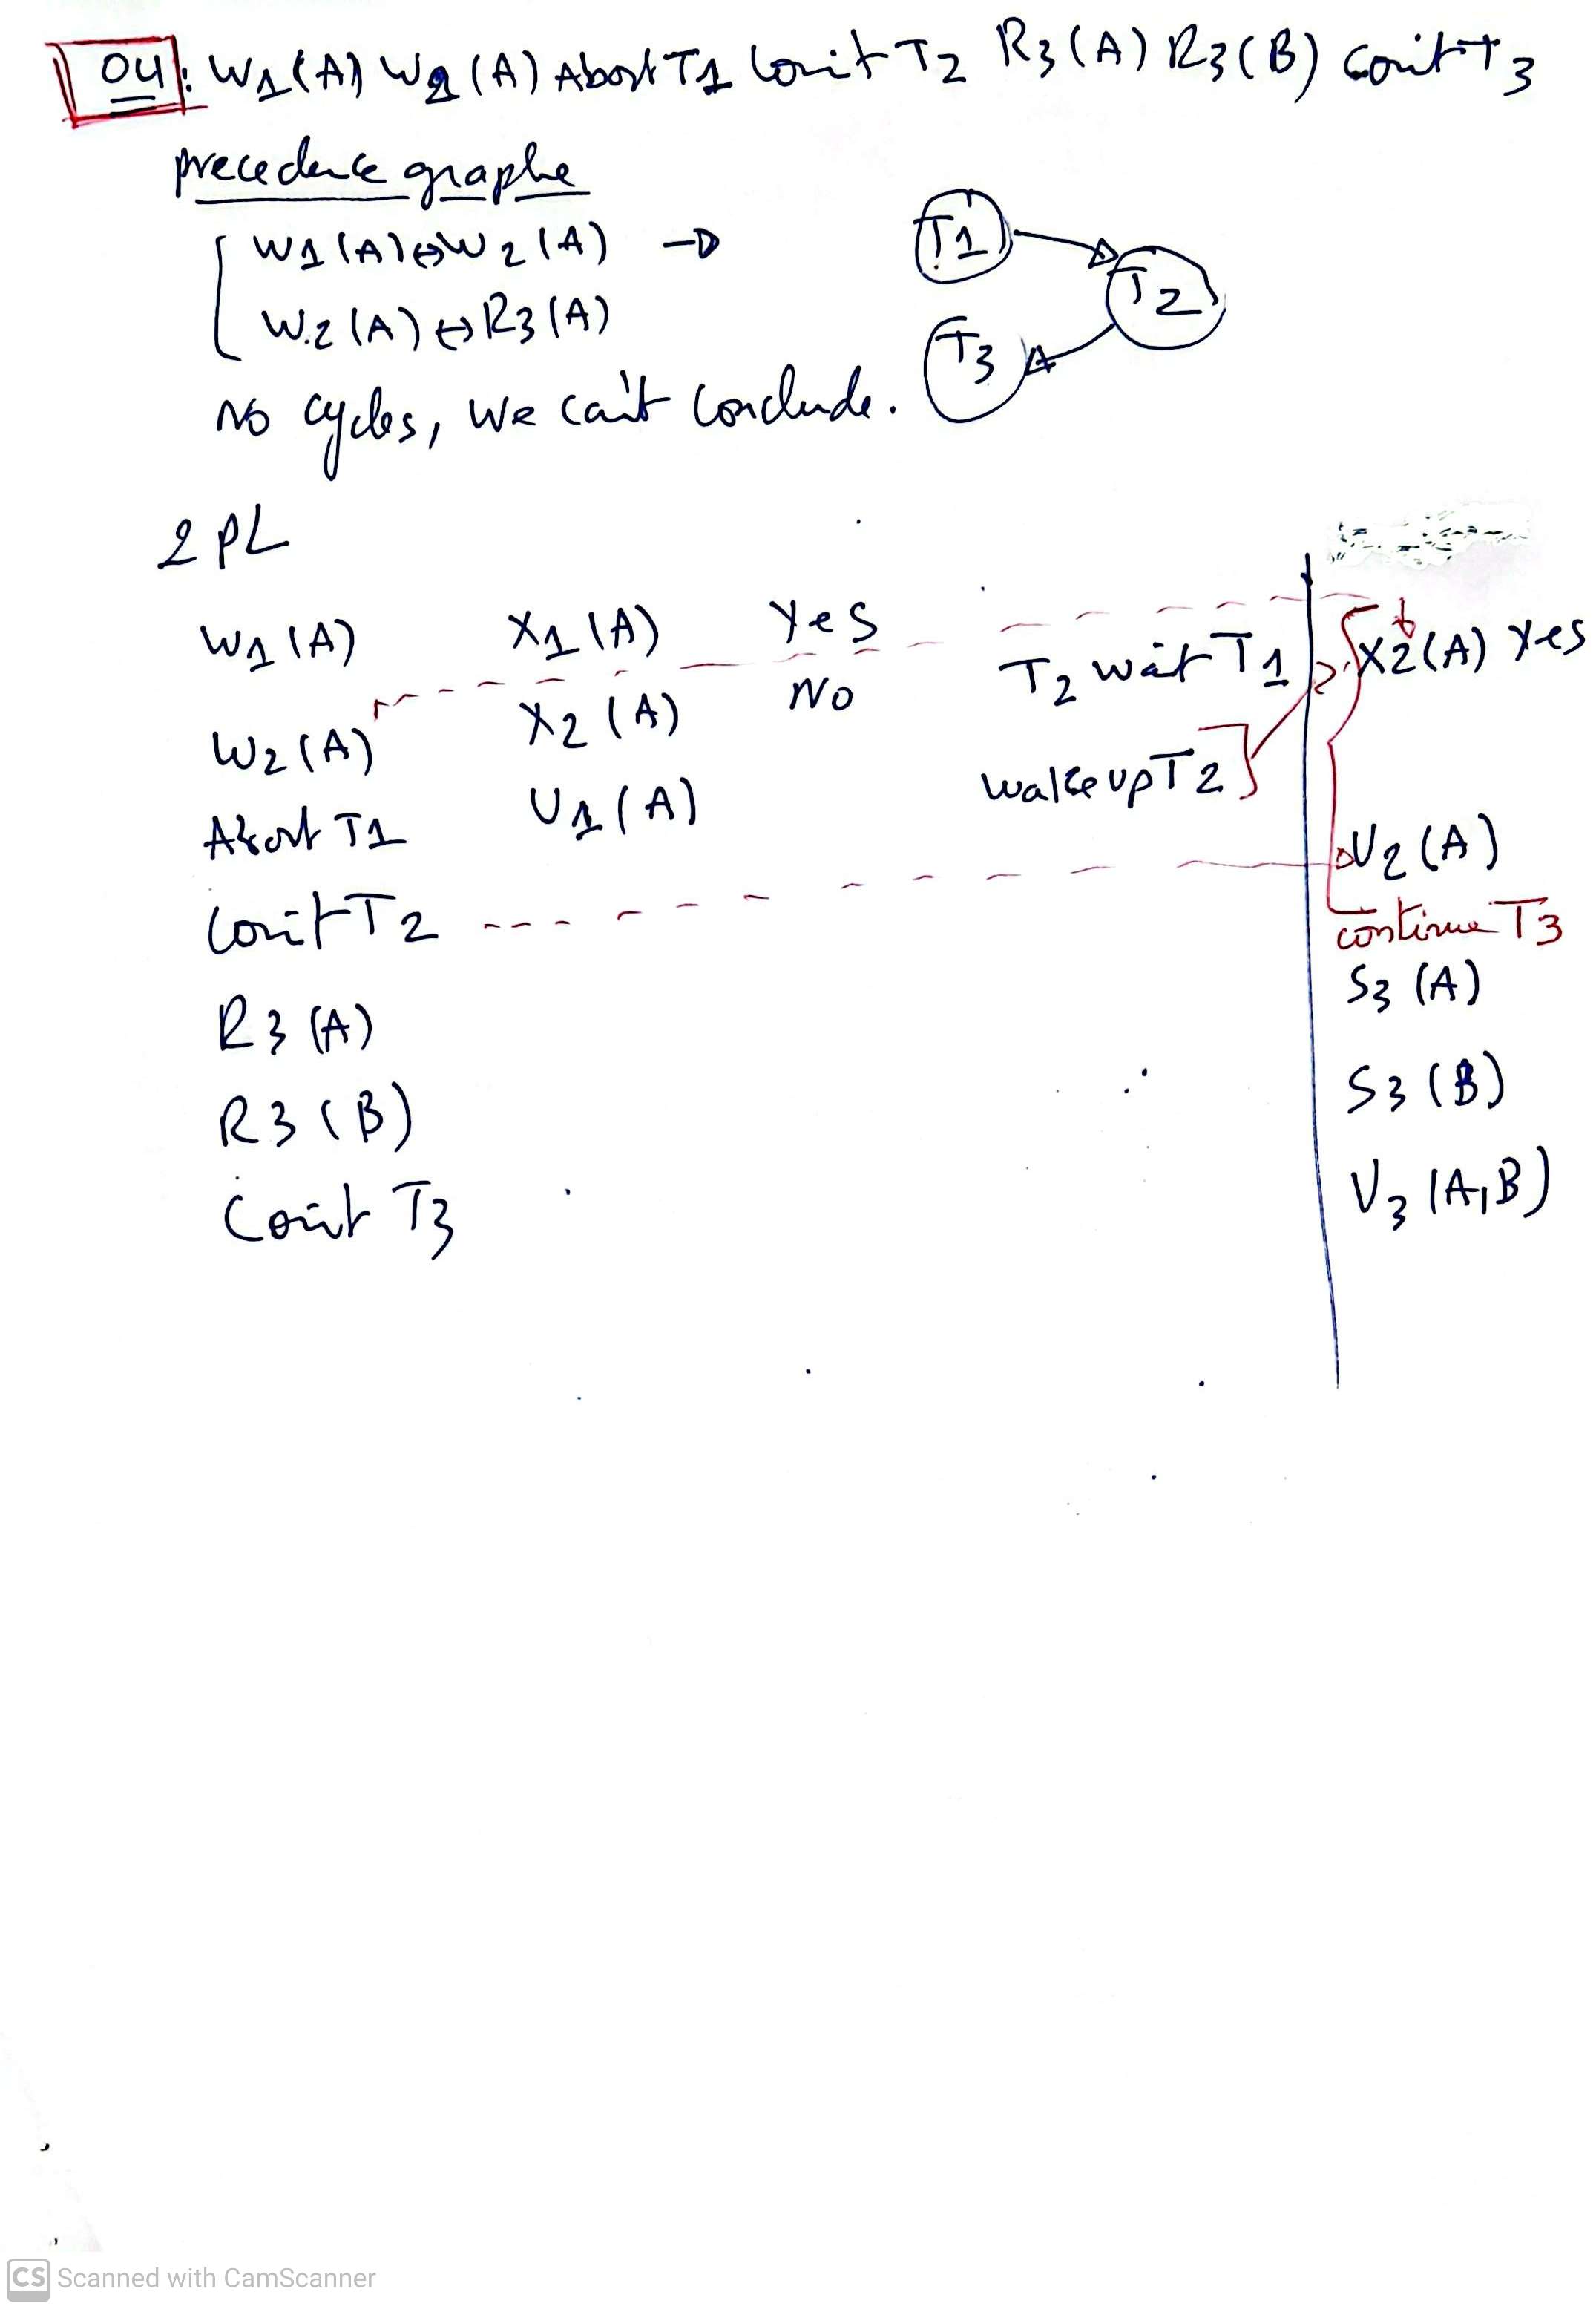 04: W1(A) W2(A) Abort T1 Comit T2 R3(A) R3(B) Comit T3
precedence graphe
W1(A) ↔ W2(A) →
W2(A) ↔ R3(A)
T1
T2
T3
No cycles, we can't conclude.
2PL
W1(A) X1(A) Yes
W2(A) X2(A) No T2 wait T1 X2(A) Yes
Abort T1 U1(A) wake up T2
Comit T2 U2(A)
continue T3
R3(A) S3(A)
R3(B) S3(B)
Comit T3 U3(A,B)
CS Scanned with CamScanner